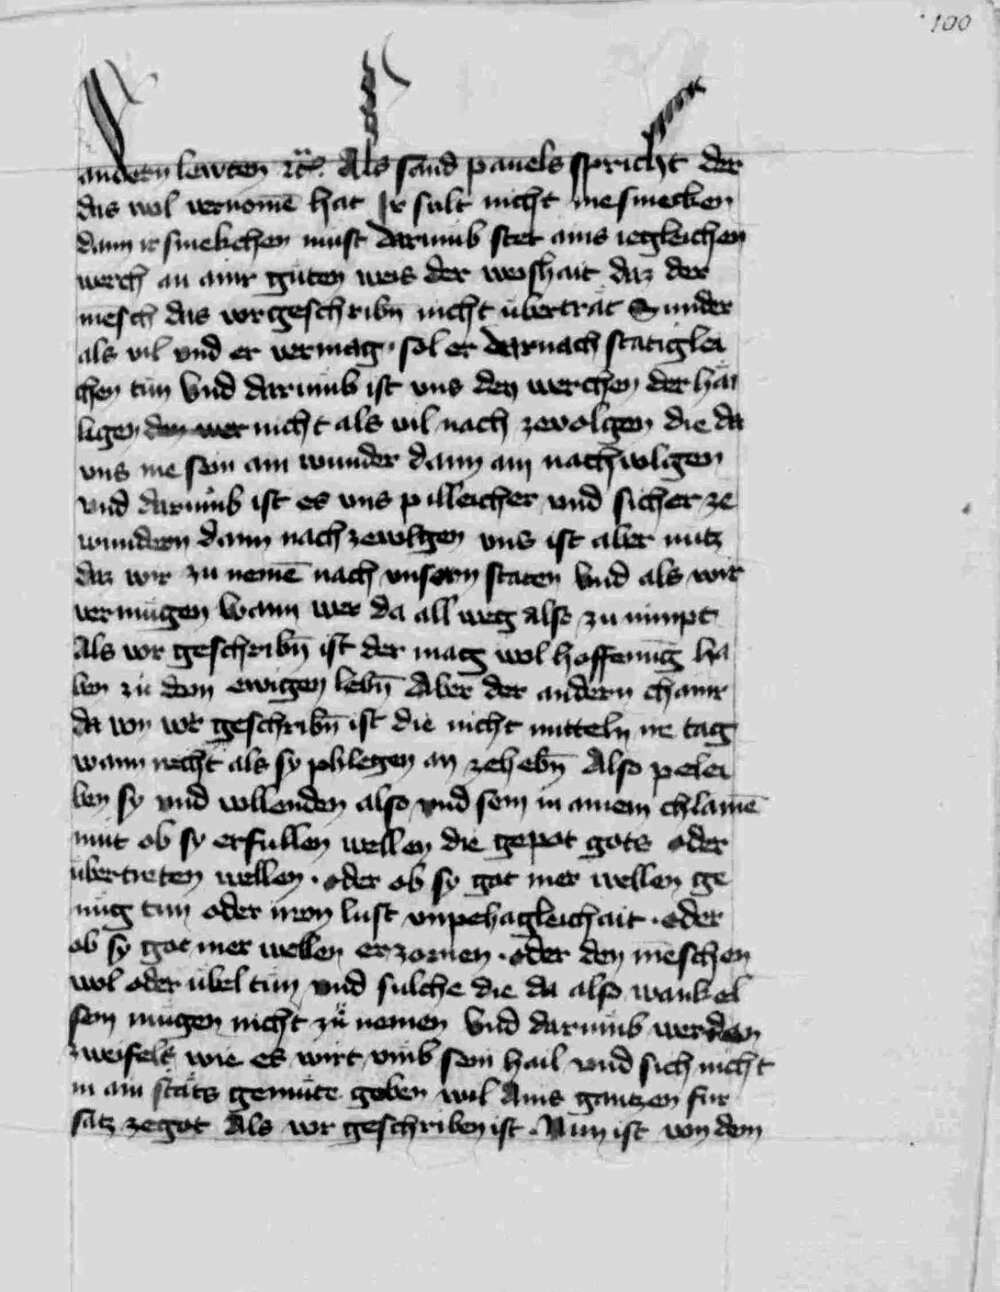 100
andern lewten ꝛc̃. Als sand pauels spricht der
das wol vernomē hat Ir sult nicht me smecken
dann ir smekchen must darumb stet ains iegleichen
werch an ainr guten weis der weishait daz der
mēsch das vorgeschribn̄ nicht übertrat Sunder
als vil vnd er vermag · sol er darnach statiglei
chen tün Vnd darumb ist vns den werchen der häi
ligen nicht als vil nach zevolgen die da
vns me sein ain wunder dann ain nachvolgen
vnd darumb ist es vns pilleicher vnd sicher ze
wundern dann nach zevolgen vns ist aber nutz
daz wir zu nemē nach vnsern staten Vnd als wir
vermügen Wann wer da all weg also zu nimpt
Als vor geschribn̄ ist der mag wol hoffenūg ha
ben zü dem ewigen lebn̄ Aber der andern chainr
da von vor geschribn̄ ist die nicht mitteln ire tag
wann recht als sy phlegen an zehebn̄ Also pelei
ben sy vnd vollenden also vnd sein in ainem chlainē
mut ob sy erfullen wellen die gepot gots oder
übertreten wellen · oder ob sy got mer wellen ge
nüg tun oder iren lust vnpehagleichait · oder
ob sy got mer wellen erzornen · oder den mēschen
wol oder übel tün vnd sulche die da also wankel
sein mugen nicht zü nemen Vnd darumb werden
zweifelt wie es wirt vmb sein hail vnd sich nicht
in ain stäts gemüte geben wil Ains gantzen für
satz zegot Als vor geschriben ist · Nun ist von dem